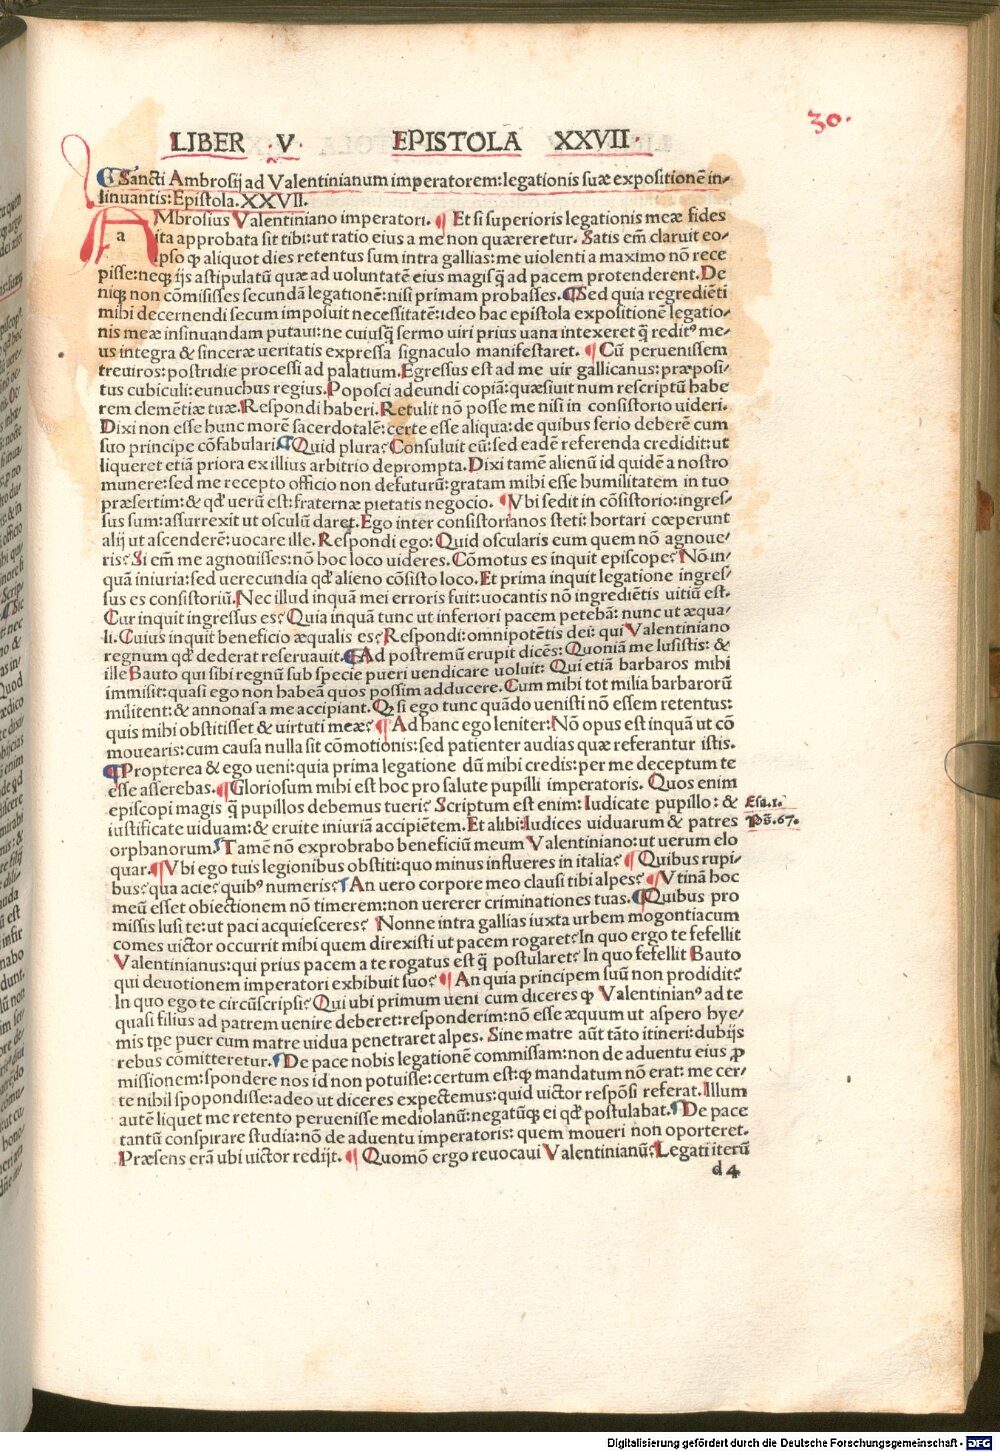 30.
LIBER .V. EPISTOLA XXVII.
¶ Sancti Ambrosij ad Valentinianum imperatorem: legationis suæ expositionẽ in-
sinuantis: Epistola. XXVII.
AMbrosius Valentiniano imperatori. ¶ Et si superioris legationis meæ fides
a ita approbata sit tibi: ut ratio eius a me non quæreretur. Satis em̃ claruit eo-
ipso ꝙ aliquot dies retentus sum intra gallias: me uiolenti a maximo nõ rece
pisse: neqꝫ ijs astipulatũ quæ ad uoluntatẽ eius magisq̃ ad pacem protenderent. De
niqꝫ non cõmisisses secundã legationẽ: nisi primam probasses. ¶ Sed quia regrediẽti
mihi decernendi secum imposuit necessitatẽ: ideo hac epistola expositionẽ legatio-
nis meæ insinuandam putaui: ne cuiusq̃ sermo uiri prius uana intexeret q̃ redit⁹ me-
us integra & sinceræ ueritatis expressa signaculo manifestaret. ¶ Cũ peruenissem
treuiros: postridie processi ad palatium. Egressus est ad me uir gallicanus: præposi-
tus cubiculi: eunuchus regius. Poposci adeundi copiã: quæsiuit num rescriptũ habe
rem clemẽtiæ tuæ. Respondi haberi. Retulit nõ posse me nisi in consistorio uideri.
Dixi non esse hunc morẽ sacerdotalẽ: certe esse aliqua: de quibus serio deberẽ cum
suo principe cõfabulari. ¶ Quid plura? Consuluit eũ: sed eadẽ referenda credidit: ut
liqueret etiã priora ex illius arbitrio deprompta. Dixi tamẽ alienũ id quidẽ a nostro
munere: sed me recepto officio non defuturũ: gratam mihi esse humilitatem in tuo
præsertim: & qđ uerũ est: fraternæ pietatis negocio. ¶ Vbi sedit in cõsistorio: ingres-
sus sum: assurrexit ut osculũ daret. Ego inter consistorianos steti: hortari cœperunt
alij ut ascenderẽ: uocare ille. Respondi ego: Quid oscularis eum quem nõ agnoue-
ris? Si em̃ me agnouisses: nõ hoc loco uideres. Cõmotus es inquit episcope? Nõ in-
quã iniuria: sed uerecundia qđ alieno cõsisto loco. Et prima inquit legatione ingres-
sus es consistoriũ. Nec illud inquã mei erroris fuit: uocantis nõ ingrediẽtis uitiũ est.
Cur inquit ingressus es? Quia inquã tunc ut inferiori pacem petebã: nunc ut æqua-
li. Cuius inquit beneficio æqualis es? Respondi: omnipotẽtis dei: qui Valentiniano
regnum qđ dederat reseruauit. ¶ Ad postremũ erupit dicẽs: Quoniã me lusistis: &
ille Bauto qui sibi regnũ sub specie pueri uendicare uoluit: Qui etiã barbaros mihi
immisit: quasi ego non habeã quos possim adducere. Cum mihi tot milia barbarorũ
militent: & annonas a me accipiant. Qꝫ si ego tunc quãdo uenisti nõ essem retentus:
quis mihi obstitisset & uirtuti meæ? ¶ Ad hanc ego leniter: Nõ opus est inquã ut cõ
mouearis: cum causa nulla sit cõmotionis: sed patienter audias quæ referantur istis.
¶ Propterea & ego ueni: quia prima legatione dũ mihi credis: per me deceptum te
esse asserebas. ¶ Gloriosum mihi est hoc pro salute pupilli imperatoris. Quos enim
episcopi magis q̃ pupillos debemus tueri? Scriptum est enim: Iudicate pupillo: &
iustificate uiduam: & eruite iniuriã accipiẽtem. Et alibi: Iudices uiduarum & patres
Esa.1.
Ps̃.67.
orphanorum. ¶ Tamẽ nõ exprobrabo beneficiũ meum Valentiniano: ut uerum elo
quar. ¶ Vbi ego tuis legionibus obstiti: quo minus influeres in italiã? ¶ Quibus rupi-
bus? qua acie? quib⁹ numeris? ¶ An uero corpore meo clausi tibi alpes? ¶ Vtinã hoc
meũ esset obiectionem nõ timerem: non uererer criminationes tuas. ¶ Quibus pro
missis lusi te: ut paci acquiesceres? Nonne intra gallias iuxta urbem mogontiacum
comes uictor occurrit mihi quem direxisti ut pacem rogaret? In quo ergo te fefellit
Valentinianus: qui prius pacem a te rogatus est q̃ postularet? In quo fefellit Bauto
qui deuotionem imperatori exhibuit suo? ¶ An quia principem suũ non prodidit?
In quo ego te circũscripsi? Qui ubi primum ueni cum diceres ꝙ Valentinian⁹ ad te
quasi filius ad patrem uenire deberet: responderim: nõ esse æquum ut aspero hye-
mis tp̃e puer cum matre uidua penetraret alpes. Sine matre aũt tãto itineri: dubijs
rebus cõmitteretur. ¶ De pace nobis legationẽ commissam: non de aduentu eius ꝓ
missionem: spondere nos id non potuisse: certum est: ꝙ mandatum nõ erat: me cer-
te nihil spopondisse: adeo ut diceres expectemus: quid uictor respõsi referat. Illum
autẽ liquet me retento peruenisse mediolanũ: negatũqꝫ ei qđ postulabat. ¶ De pace
tantũ conspirare studia: nõ de aduentu imperatoris: quem moueri non oporteret.
Præsens erã ubi uictor redijt. ¶ Quomõ ergo reuocaui Valentinianũ? Legati iterũ
d4
Digitalisierung gefördert durch die Deutsche Forschungsgemeinschaft - DFG